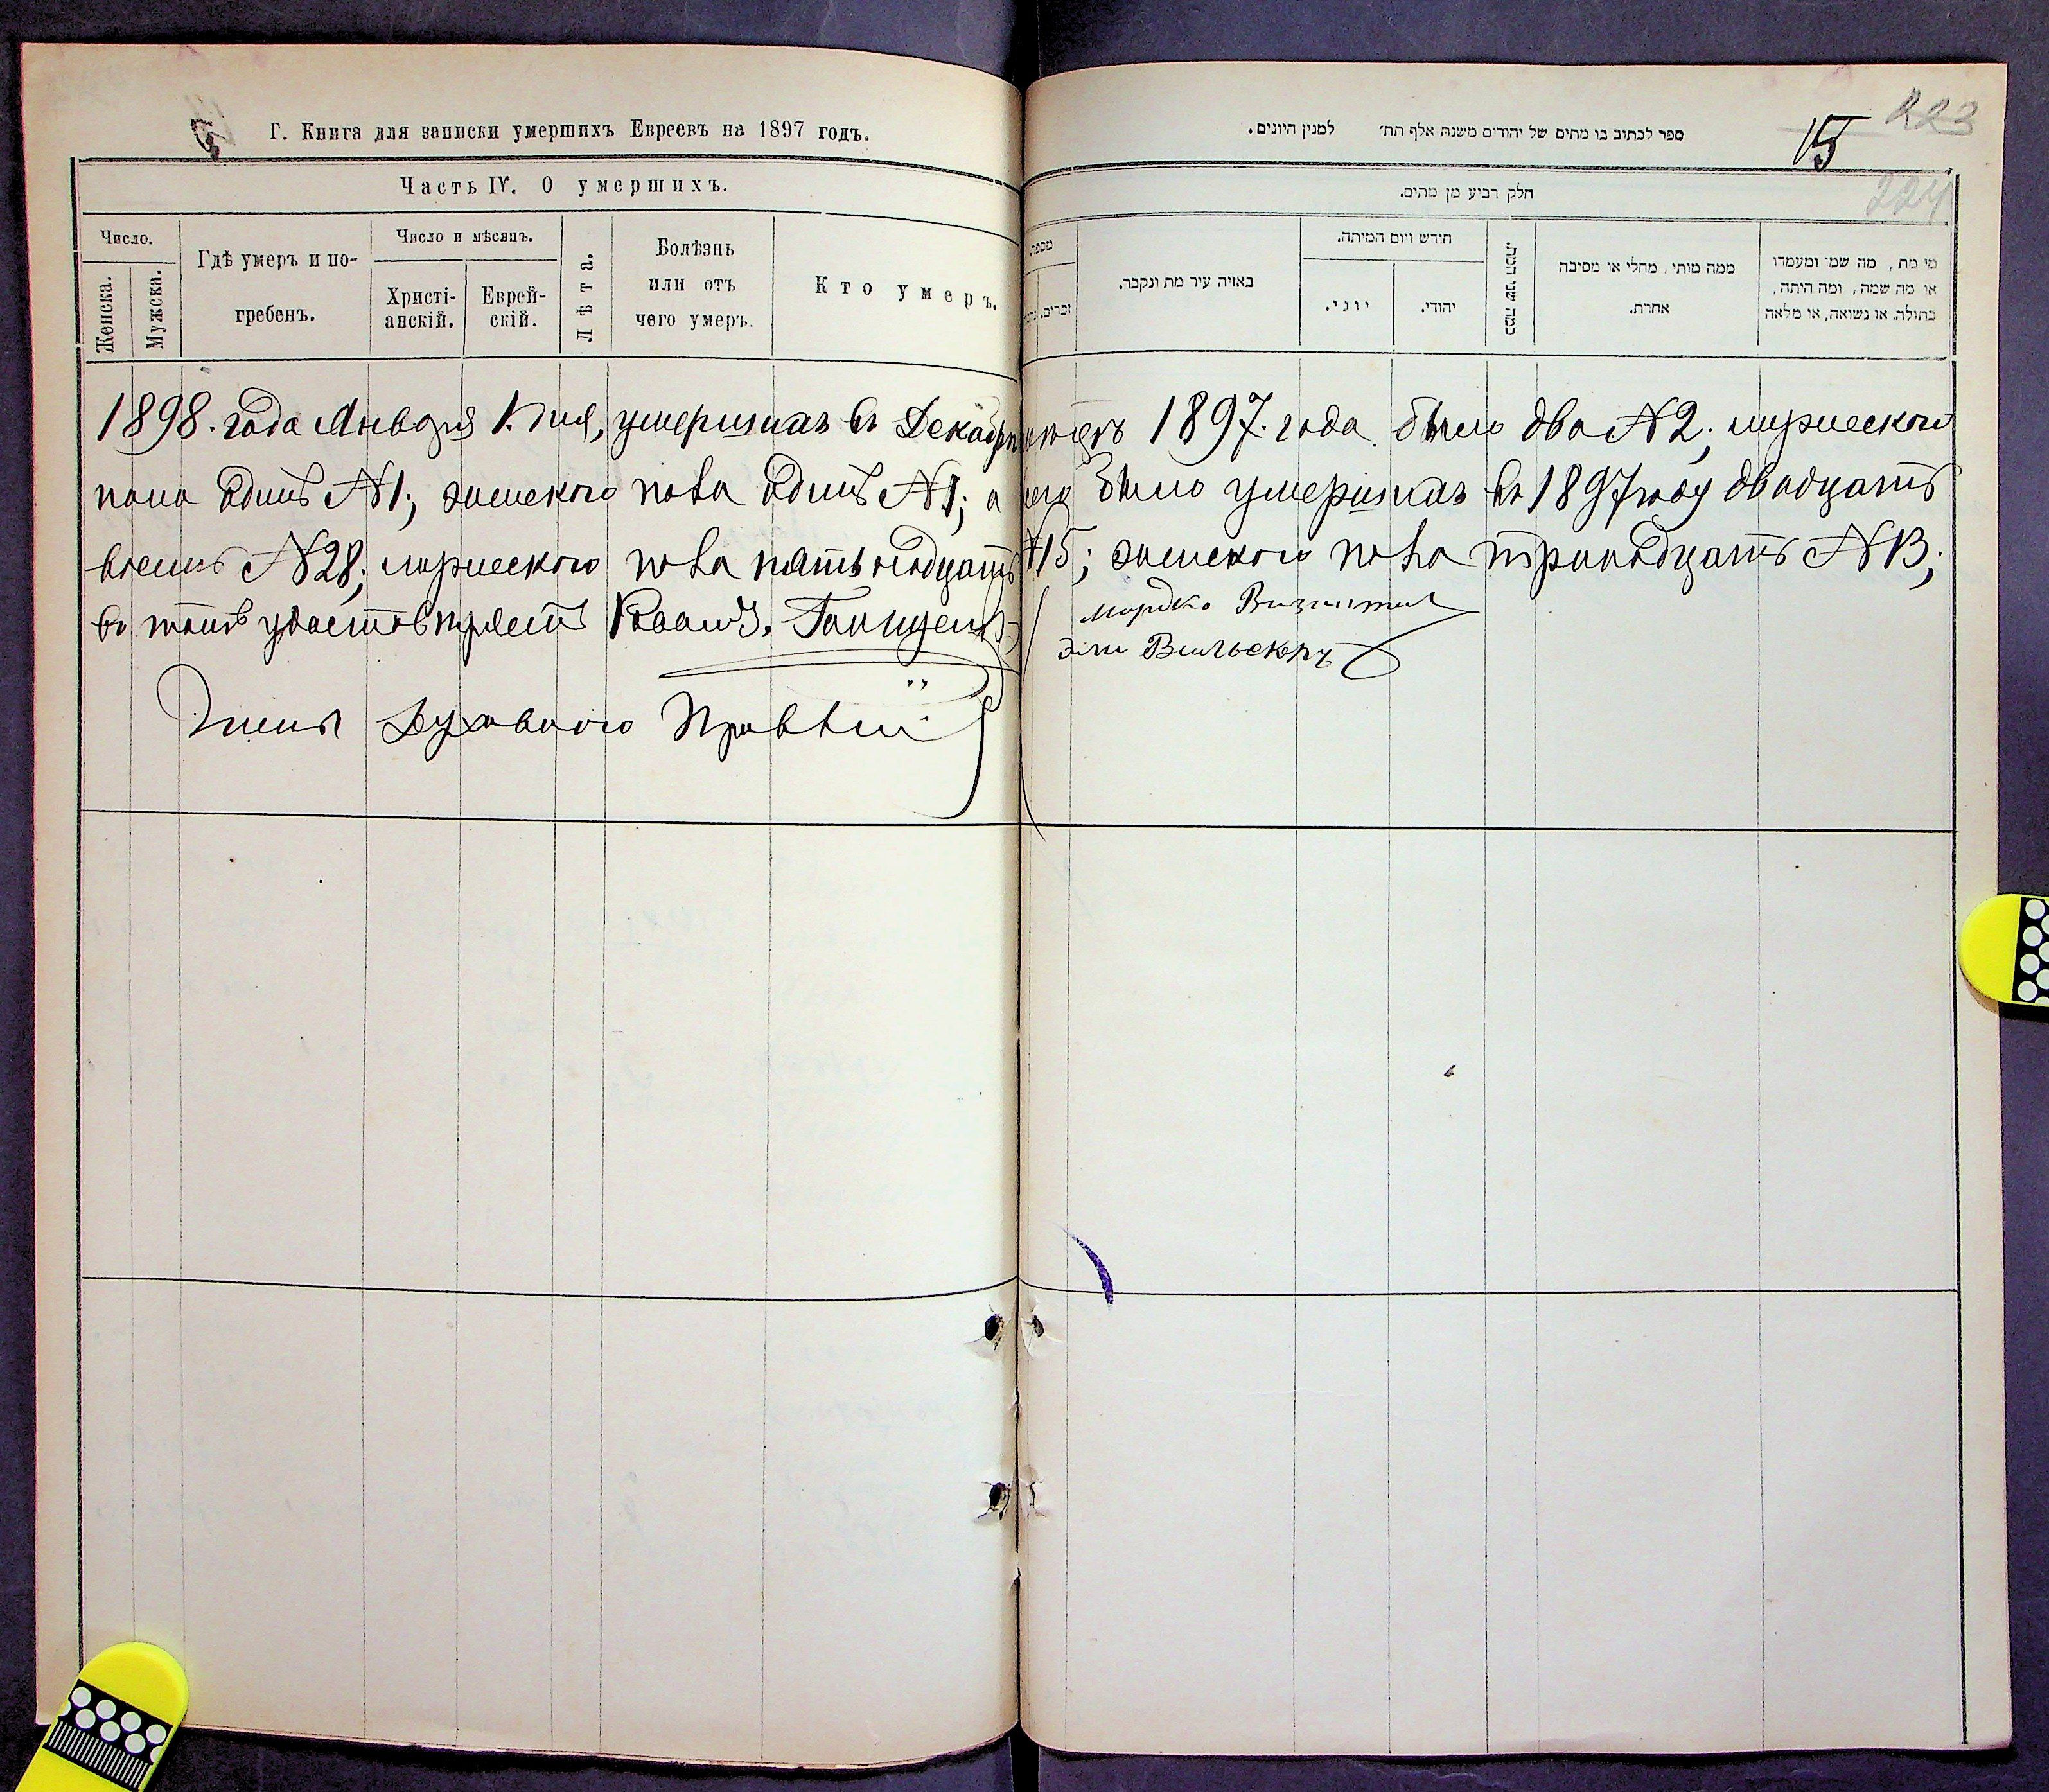 Г. Книга для записки умершихъ Евреевъ на 1897 годъ.
Часть IV. О умершихъ.
Число.
Женска.
Мужска.
Гдѣ умеръ и по-
гребенъ.
Число и мѣсяцъ.
Христі-
анскій.
Еврей-
скій.
Лѣта.
Болѣзнь
или отъ
чего умеръ.
Кто умеръ.
223
15
224
ספר לכתוב בו מתים של יהודים משנת אלף תת׳ למנין היונים.
חלק רביע מן מתים.
מספר
זכרים.
באיזה עיר מת ונקבר.
חודש ויום המיתה.
יוני.
יהודי.
כמה שני
ממה מותי, מחלי או מסיבה
אחרת.
מי מת, מה שמו ומעמדו
או מה שמה, ומה היתה,
בתולה. או נשואה, או מלאה
1898. года Января 1. дня, умершихъ въ Декабрѣ мѣсяцѣ 1897. года было два №2; мужескаго
пола одинъ №1; женскаго пола одинъ №1; а всего было умершихъ въ 1897 году двадцать
восемь №28; мужескаго пола пятьнадцать №15; женскаго пола тринадцать №13;
въ томъ удостовѣряетъ
Мордко
Эли
Члены Духовнаго Правленія